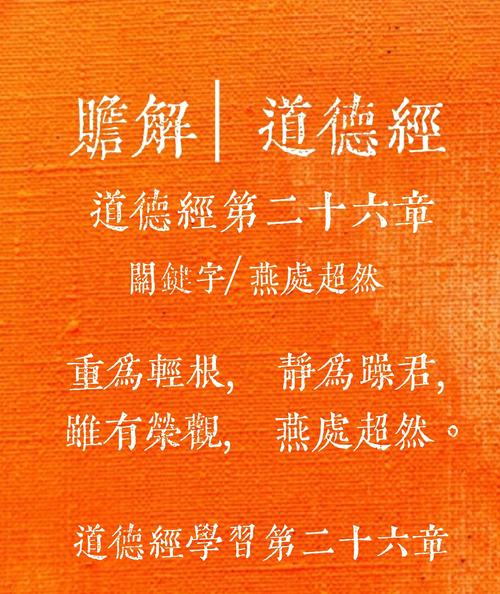 贍解|道德經
道德經第二十六章
關鍵字/燕處超然
重爲輕根, 靜爲躁君,
雖有榮觀, 燕處超然。
道德經學習第二十六章